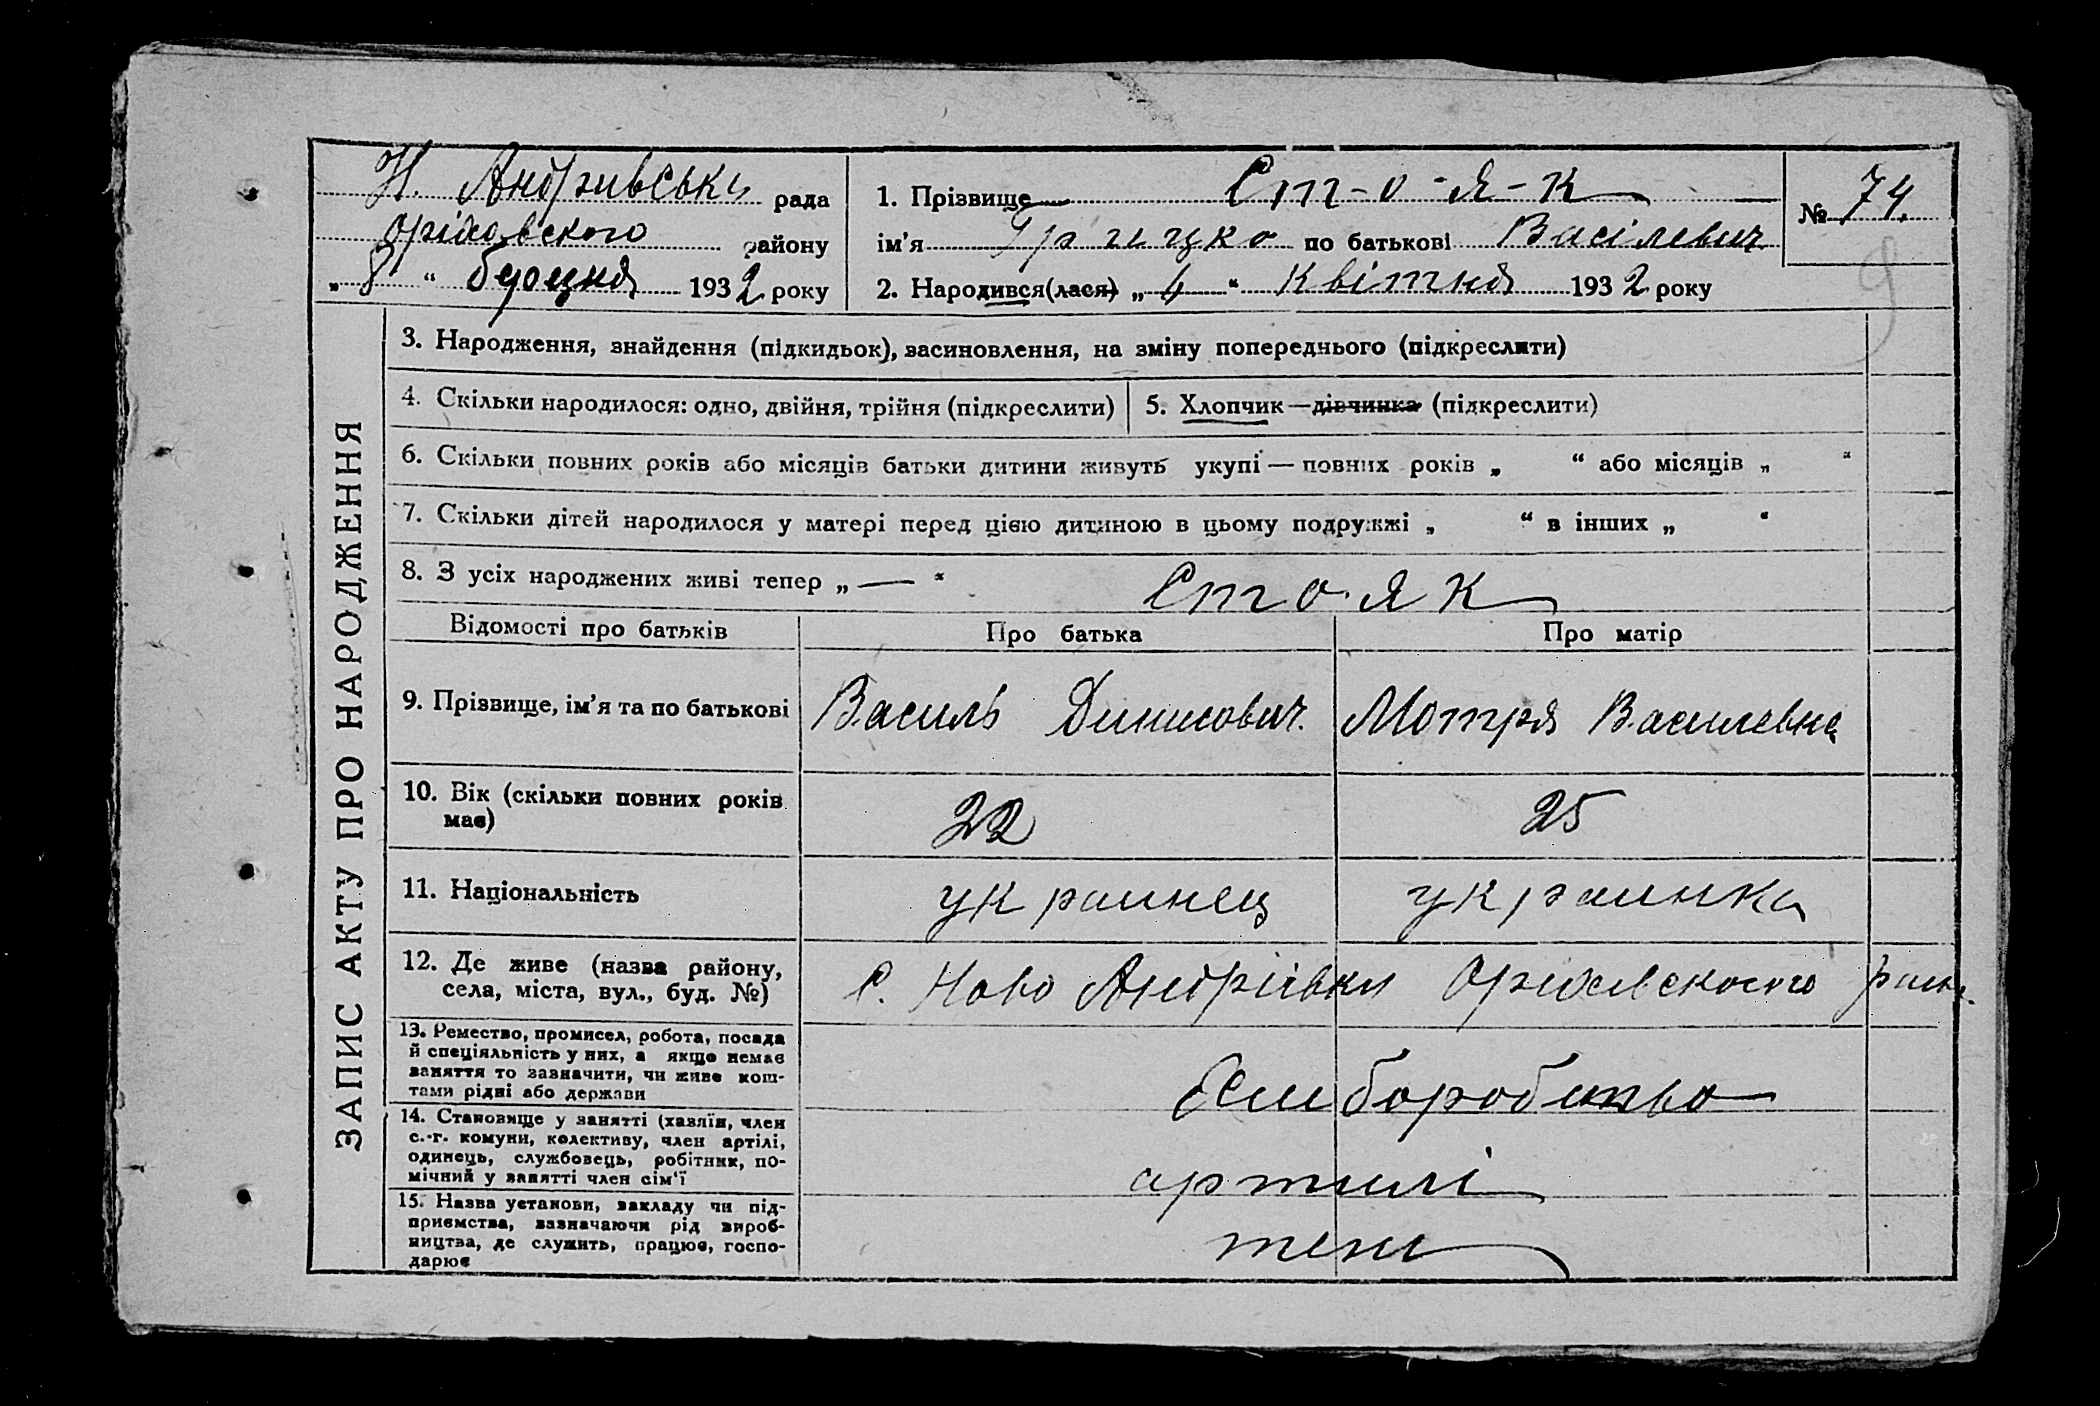 Н. Андривська рада
оріховского району
„ 8 “ 1932 року
1. Прізвище Ст-о-я-к
ім’я Грицко по батькові Васілевич
2. Народився(лася) „ 4 “ Квітня 1932 року
№ 74.
9
ЗАПИС АКТУ ПРО НАРОДЖЕННЯ
3. Народження, знайдення (підкидьок), засиновлення, на зміну попереднього (підкреслити)
4. Скільки народилося: одно, двійня, трійня (підкреслити)
5. Хлопчик—дівчинка (підкреслити)
6. Скільки повних років або місяців батьки дитини живуть укупі — повних років „ “ або місяців „ “
7. Скільки дітей народилося у матері перед цією дитиною в цьому подружжі „ “ в інших „ “
8. З усіх народжених живі тепер „ — “ Стояк
Відомості про батьків
Про батька
Про матір
9. Прізвище, ім’я та по батькові
Василь Динисович.
Мотря Василевна
10. Вік (скільки повних років
має)
22
25
11. Національність
украинец
украинка
12. Де живе (назва району,
села, міста, вул., буд. №)
С. Ново Андріівки Оріховского раио.
13. Ремество, промисел, робота, посада
й спеціяльність у них, а якщо немає
заняття то зазначити, чи живе кош-
тами рідні або держави
хемборобство
14. Становище у занятті (хазяїн, член
с.-г. комуни, колективу, член артілі,
одинець, службовець, робітник, по-
мічний у занятті член сім’ї
артилі
15. Назва установи, закладу чи під-
приємства, зазначаючи рід вироб-
ництва, де служить, працює, госпо-
дарює
тени